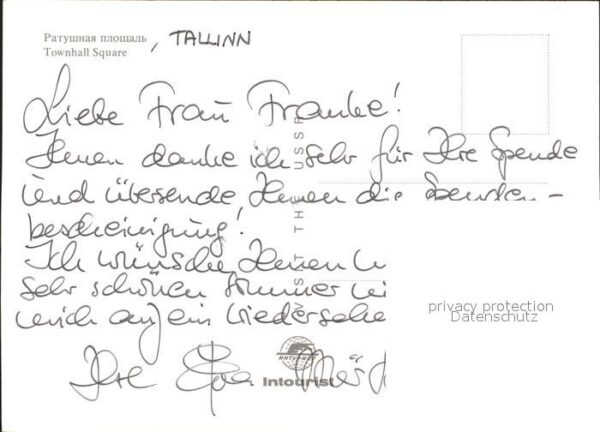 Ратушная площадь, TALLINN
Townhall Square
Liebe Frau Franke!
Ihnen danke ich sehr für Ihre Spende
und übersende Ihnen die Spenden-
bescheinigung!
Ich wünsche Ihnen
sehr schönen Sommer
mich auf ein Wiedersehe
Ihre Eva
VISIT THE USSR
ИНТУРИСТ
Intourist
privacy protection
Datenschutz